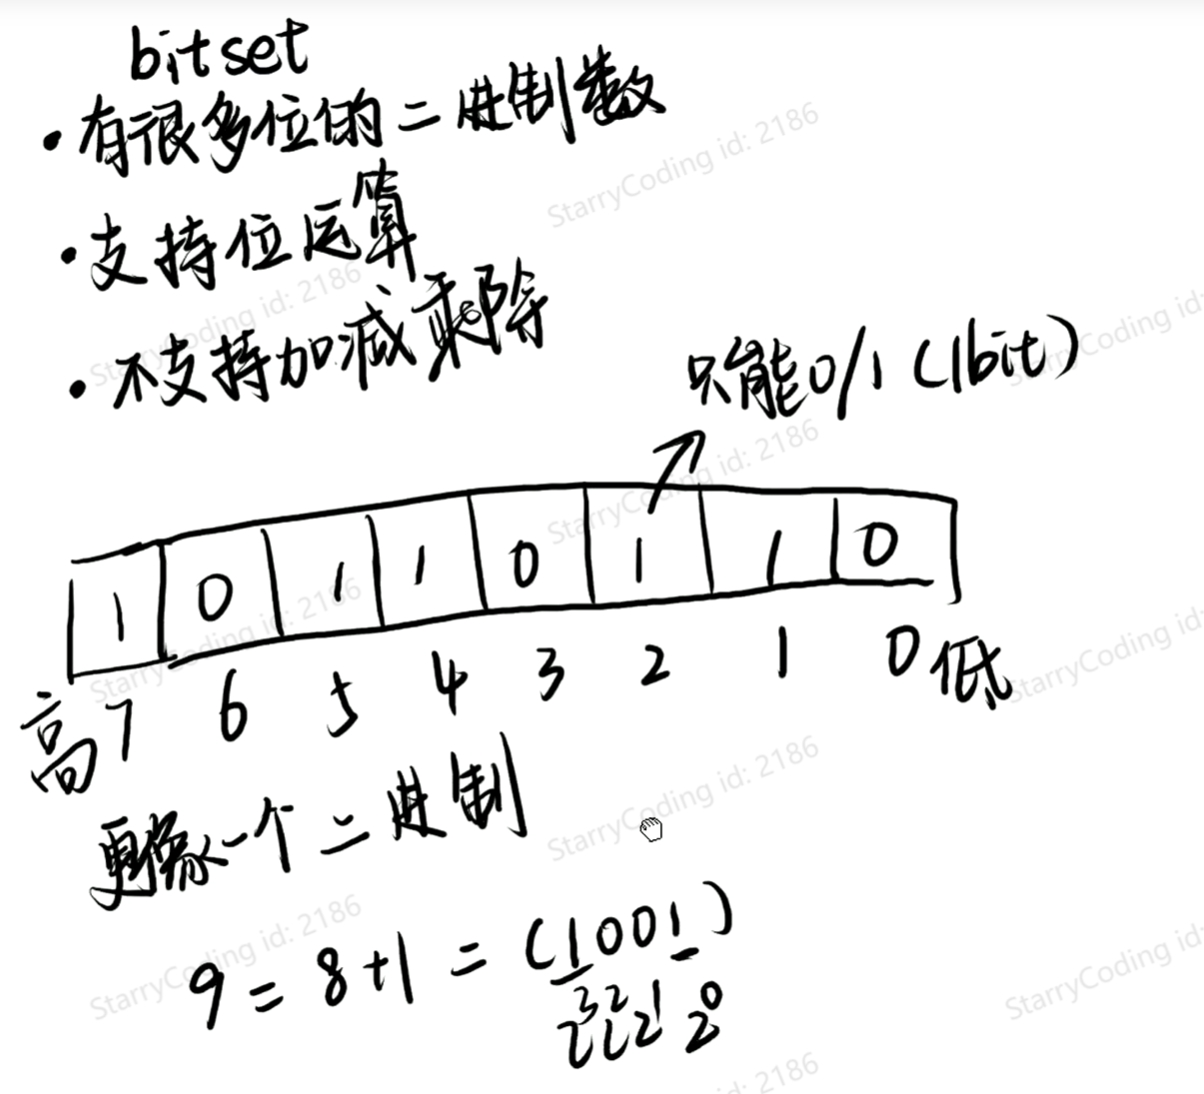 bitset
·有很多位的二进制数
·支持位运算
·不支持加减乘除
只能0/1 (1bit)
1 0 1 1 0 1 1 0
高 7 6 5 4 3 2 1 0 低
更像一个二进制
9 = 8+1 = (1001)
2³ 2² 2¹ 2⁰
StarryCoding id: 2186
StarryCoding id: 2186
StarryCoding id:
StarryCoding id: 2186
StarryCoding id: 2186
StarryCoding id:
StarryCoding id: 2186
StarryCoding id: 2186
StarryCoding id:
id: 2186